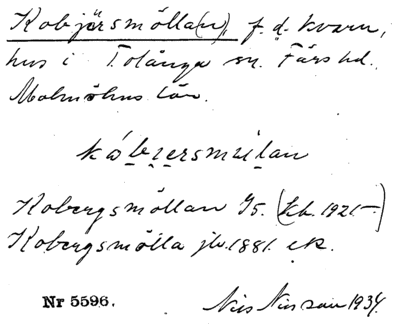 Kobjärsmölla(n), f.d. kvarn,
hus i Tolånga sn. Färs hd.
Malmöhus län.
Kobergsmöllan G5. (kb. 1921-)
Kobergsmölla jb. 1881. ek.
Nr 5596. Nils Nilsson 1934.